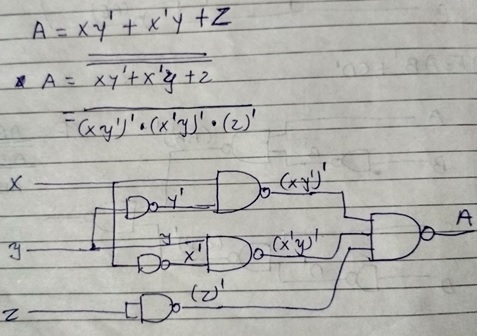 A = xy' + x'y + z
A = xy' + x'y + z
= (xy')' • (x'y)' • (z)'
x
y'
(xy')'
A
y
y
x'
(x'y)'
z
(z)'